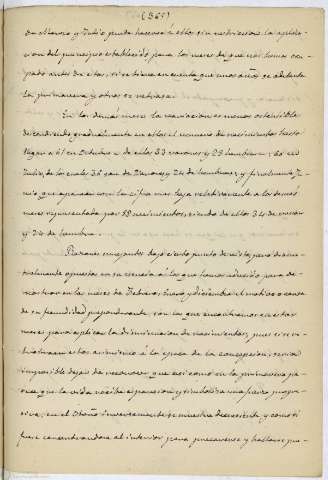 (365)
de Marzo y Julio puede hacerse á ellos sin restriccion la aplica-
cion del principio establecido para los meses de que nos hemos ocu-
pado antes de estos, si se tiene en cuenta que unos años se adelanta
la primavera y otros se retrasa.
En los demás meses la variacion es menos ostensible
descendiendo gradualmente en ellos el numero de nacimientos hasta
llegar a 61 en Octubre de ellos 33 varones y 28 hembras; 60 en
Julio, de los cuales 36 son de Varones y 24 de hembras; y finalmente Ju-
nio que aparece con la cifra mas baja relativamente a los demás
meses representada por 58 nacimientos, siendo de ellos 34 de varon
y 24 de hembra.
Razones semejantes bajo cierto punto de vista, pero diame-
tralmente opuestas en su esencia á las que hemos aducido para de-
mostrar en los meses de Febrero, Enero y Diciembre el motivo o causa
de su fecundidad preponderante, son las que encontramos en estos
meses para esplicar la disminucion de nacimientos, pues si re-
trotraemos estos al inicio á la época de la concepcion, seria
imposible dejar de reconocer que así como en la primavera pa-
rece que la vida recibe espansion y simboliza una fuerza progre-
siva, en el Otoño inversamente se muestra decreciente y como ti
fuese concentrandose al interior para precaverse y hallarse pre-